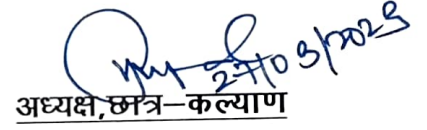 27/03/2025
अध्यक्ष,छात्र–कल्याण